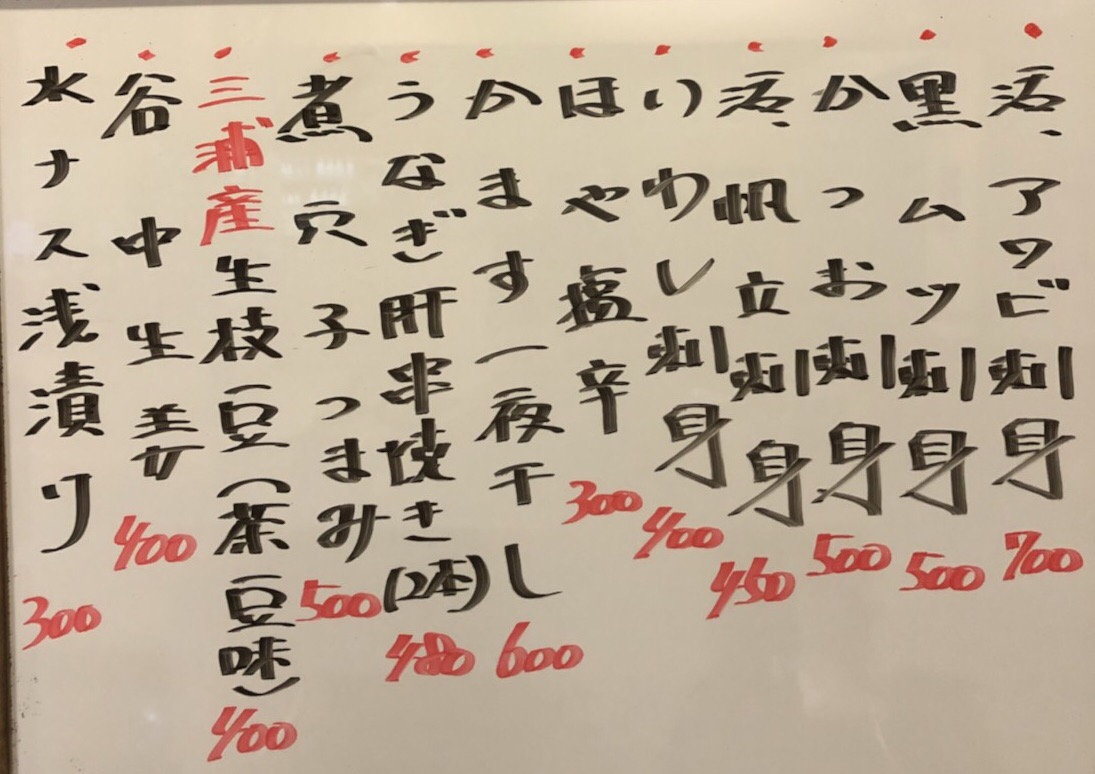 活アワビ刺身 700
黒ムツ刺身 500
かつお刺身 500
活帆立刺身 450
いわし刺身 400
ほや塩辛 300
かます一夜干し 600
うなぎ肝串焼き(2本) 480
煮穴子つまみ 500
三浦産生枝豆(茶豆味) 400
谷中生姜 400
水ナス浅漬り 300